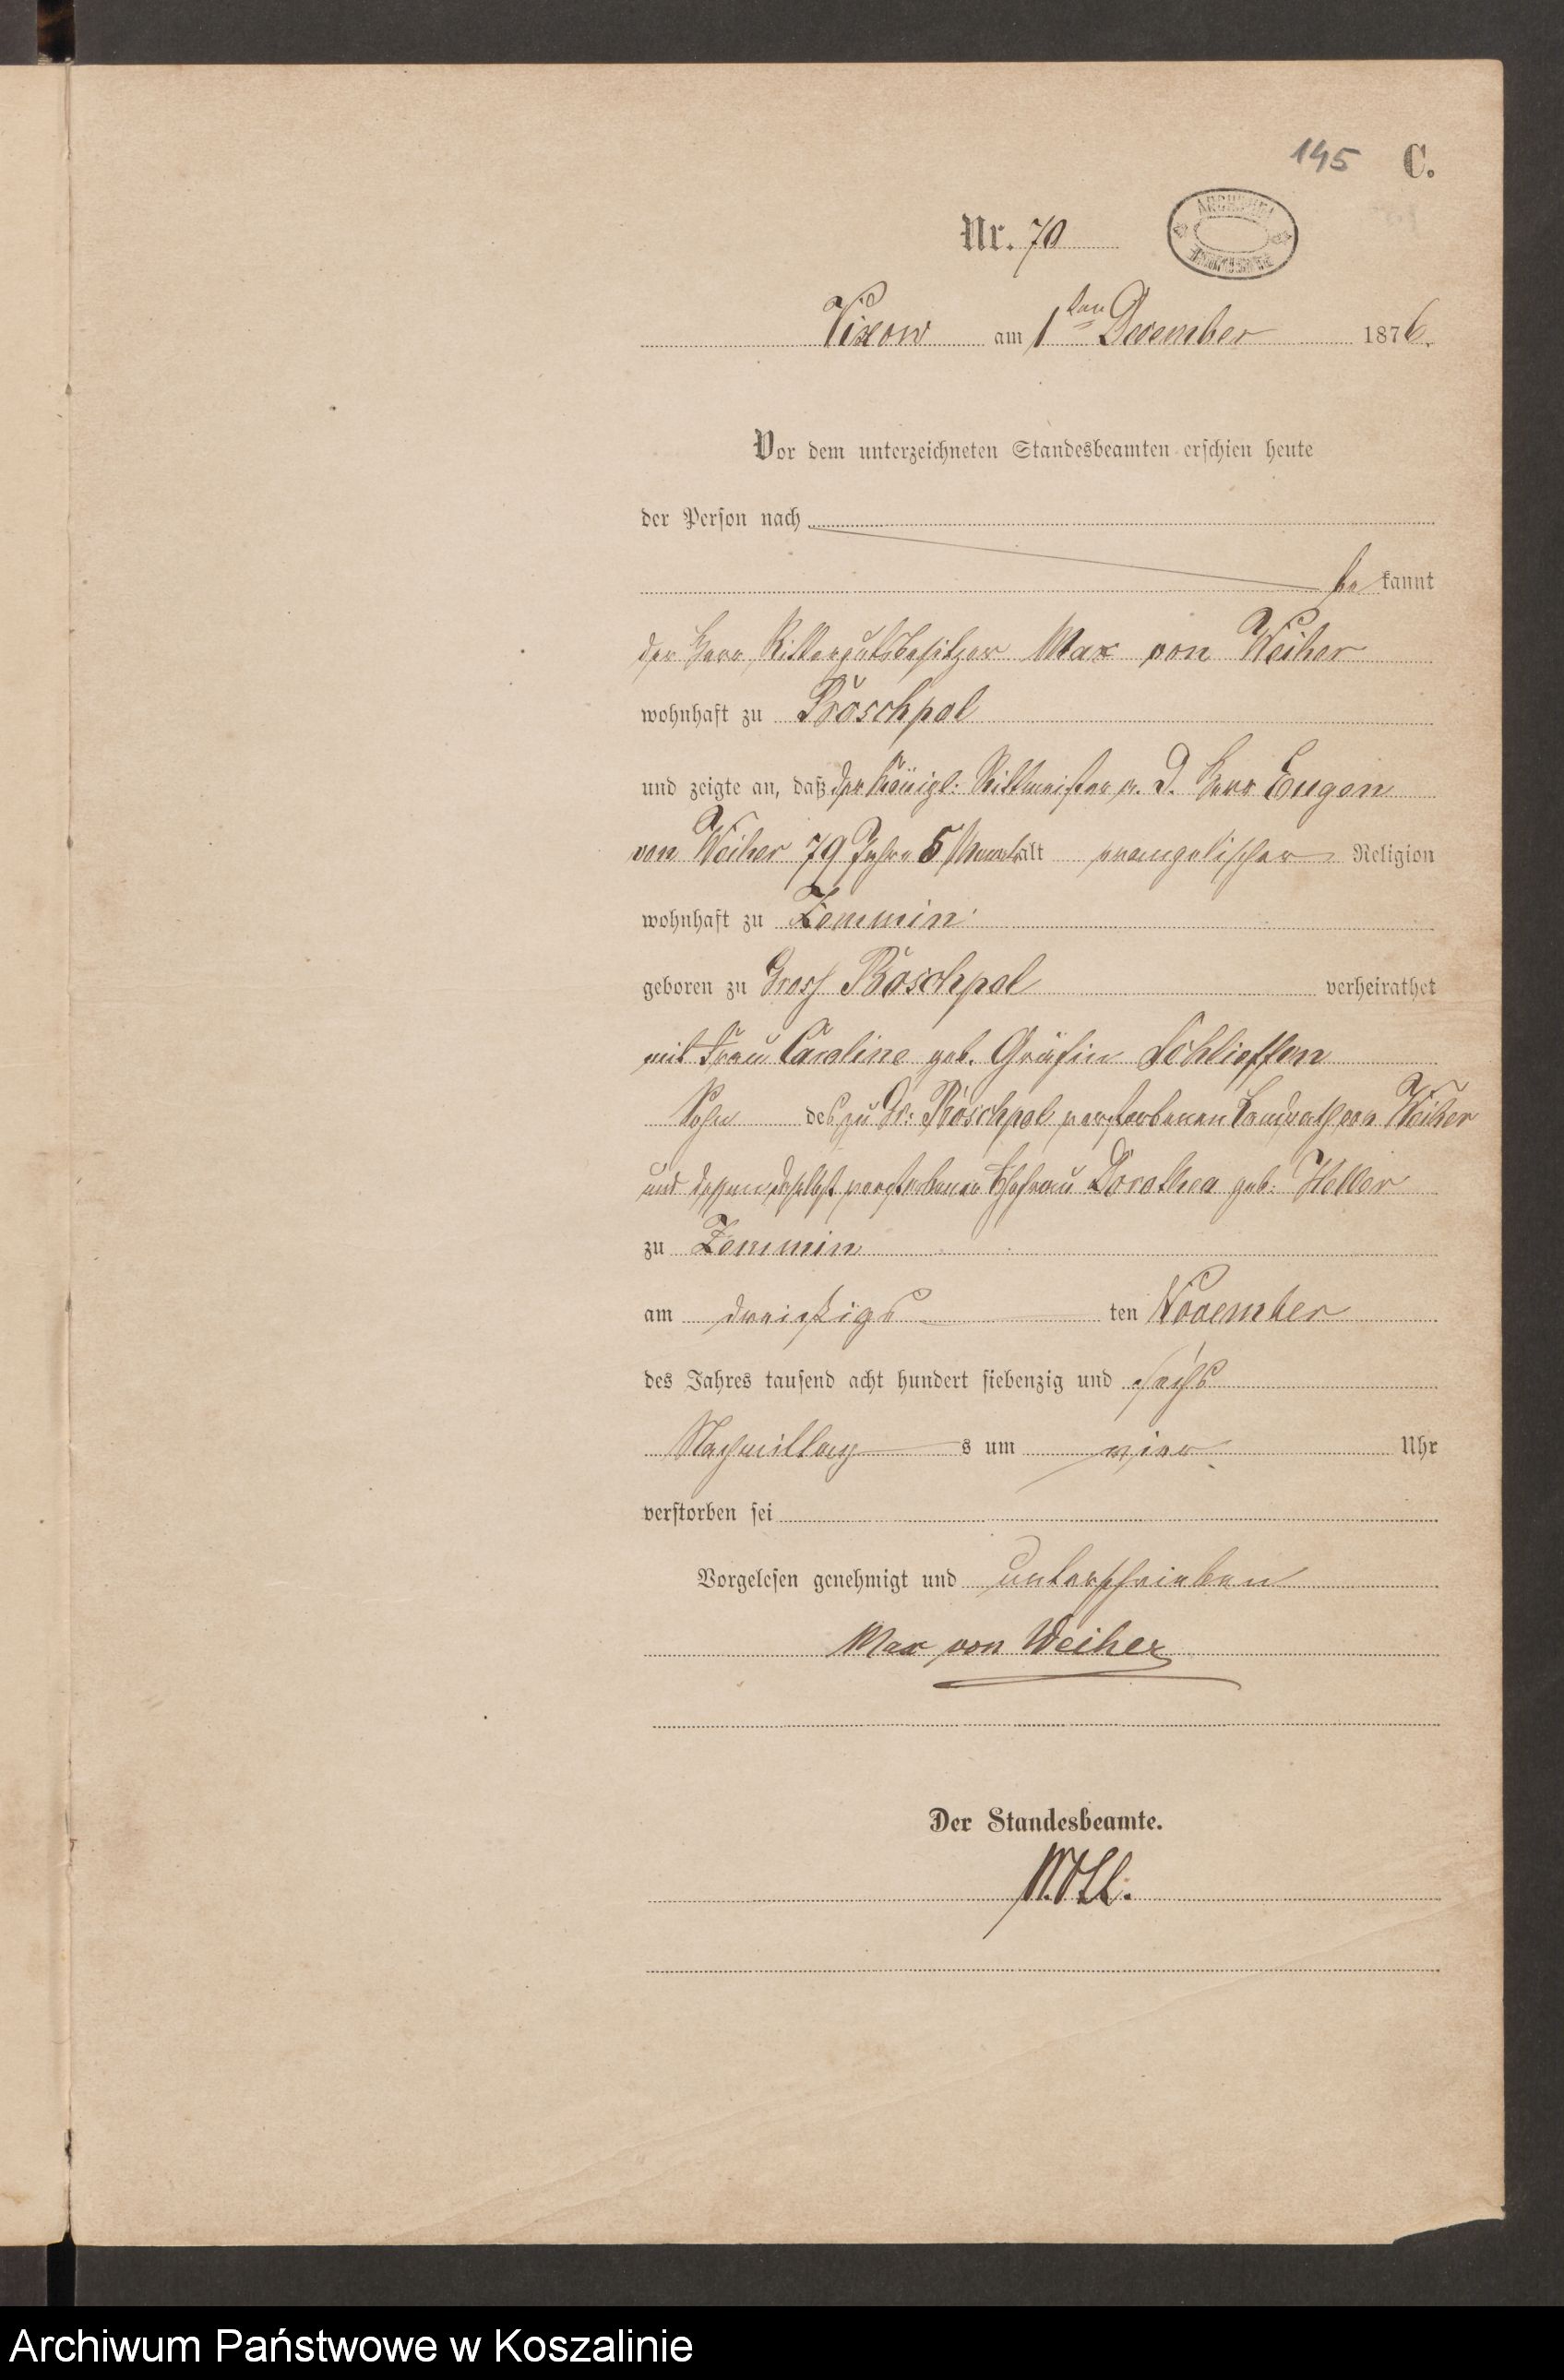 145 C.
Nr. 70
Vixow am 1ten December 1876.
Vor dem unterzeichneten Standesbeamten erschien heute
der Person nach
be kannt
der Herr Rittergutsbesitzer Max von Weiher
wohnhaft zu Böschpol
und zeigte an, daß der Königl: Rittmeister a. D. Herr Eugen
von Weiher 79 Jahre 5 Monat alt evangelischer Religion
wohnhaft zu Zemmin
geboren zu Gross Boschpol verheirathet
mit Frau Caroline geb. Gräfin Schlieffen
Sohn des zu Gr: Boschpol verstorbenen Landrath von Weiher
und dessen daselbst verstorbener Ehefrau Dorothea geb: Heller
zu Zemmin
am dreißigs ten November
des Jahres tausend acht hundert siebenzig und sechs
Nachmittag s um vier Uhr
verstorben sei
Vorgelesen genehmigt und unterschrieben
Max von Weiher
Der Standesbeamte.
Archiwum Państwowe w Koszalinie